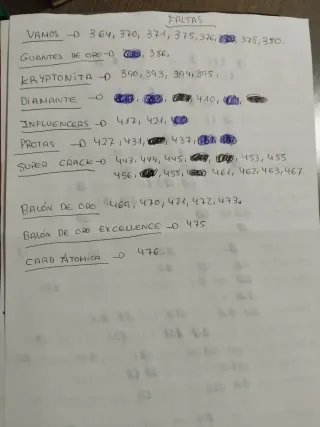 FALTAS
VAMOS → 364, 370, 371, 375, 376, 378, 380.
GUANTES DE ORO → 386.
KRYPTONITA → 390, 393, 394, 395.
DIAMANTE → 410,
INFLUENCERS → 417, 421,
PROTAS → 427, 431, 437,
SUPER CRACK → 443, 444, 445, 453, 455
456, 461, 462, 463, 467
BALÓN DE ORO 469, 470, 471, 472, 473.
BALÓN DE ORO EXCELLENCE → 475
CARD ATÓMICA → 476.